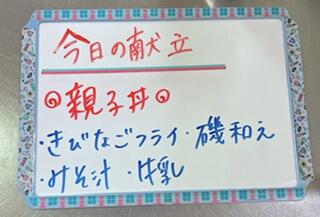 今日の献立
◎親子丼◎
・きびなごフライ・磯和え
・みそ汁・牛乳